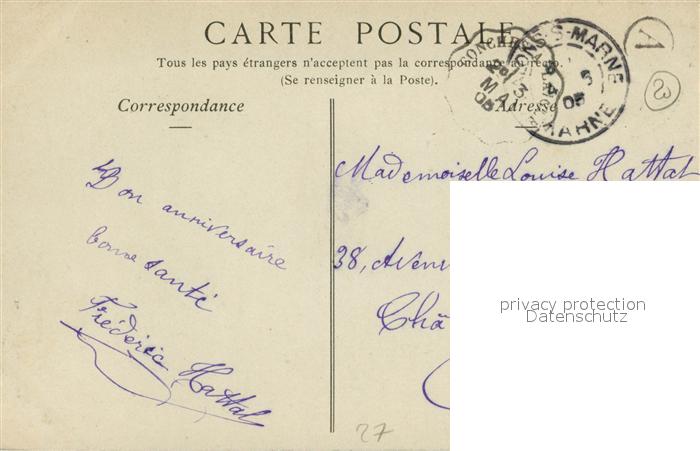 CARTE POSTALE
Tous les pays étrangers n'acceptent pas la correspondance au recto.
(Se renseigner à la Poste).
Correspondance
Adresse
S-MARNE
MARNE
05
A
Bon anniversaire
bonne santé
Fréderic Hattat
Mademoiselle Louise Hattat
38, Aven
Châ
privacy protection
Datenschutz
27